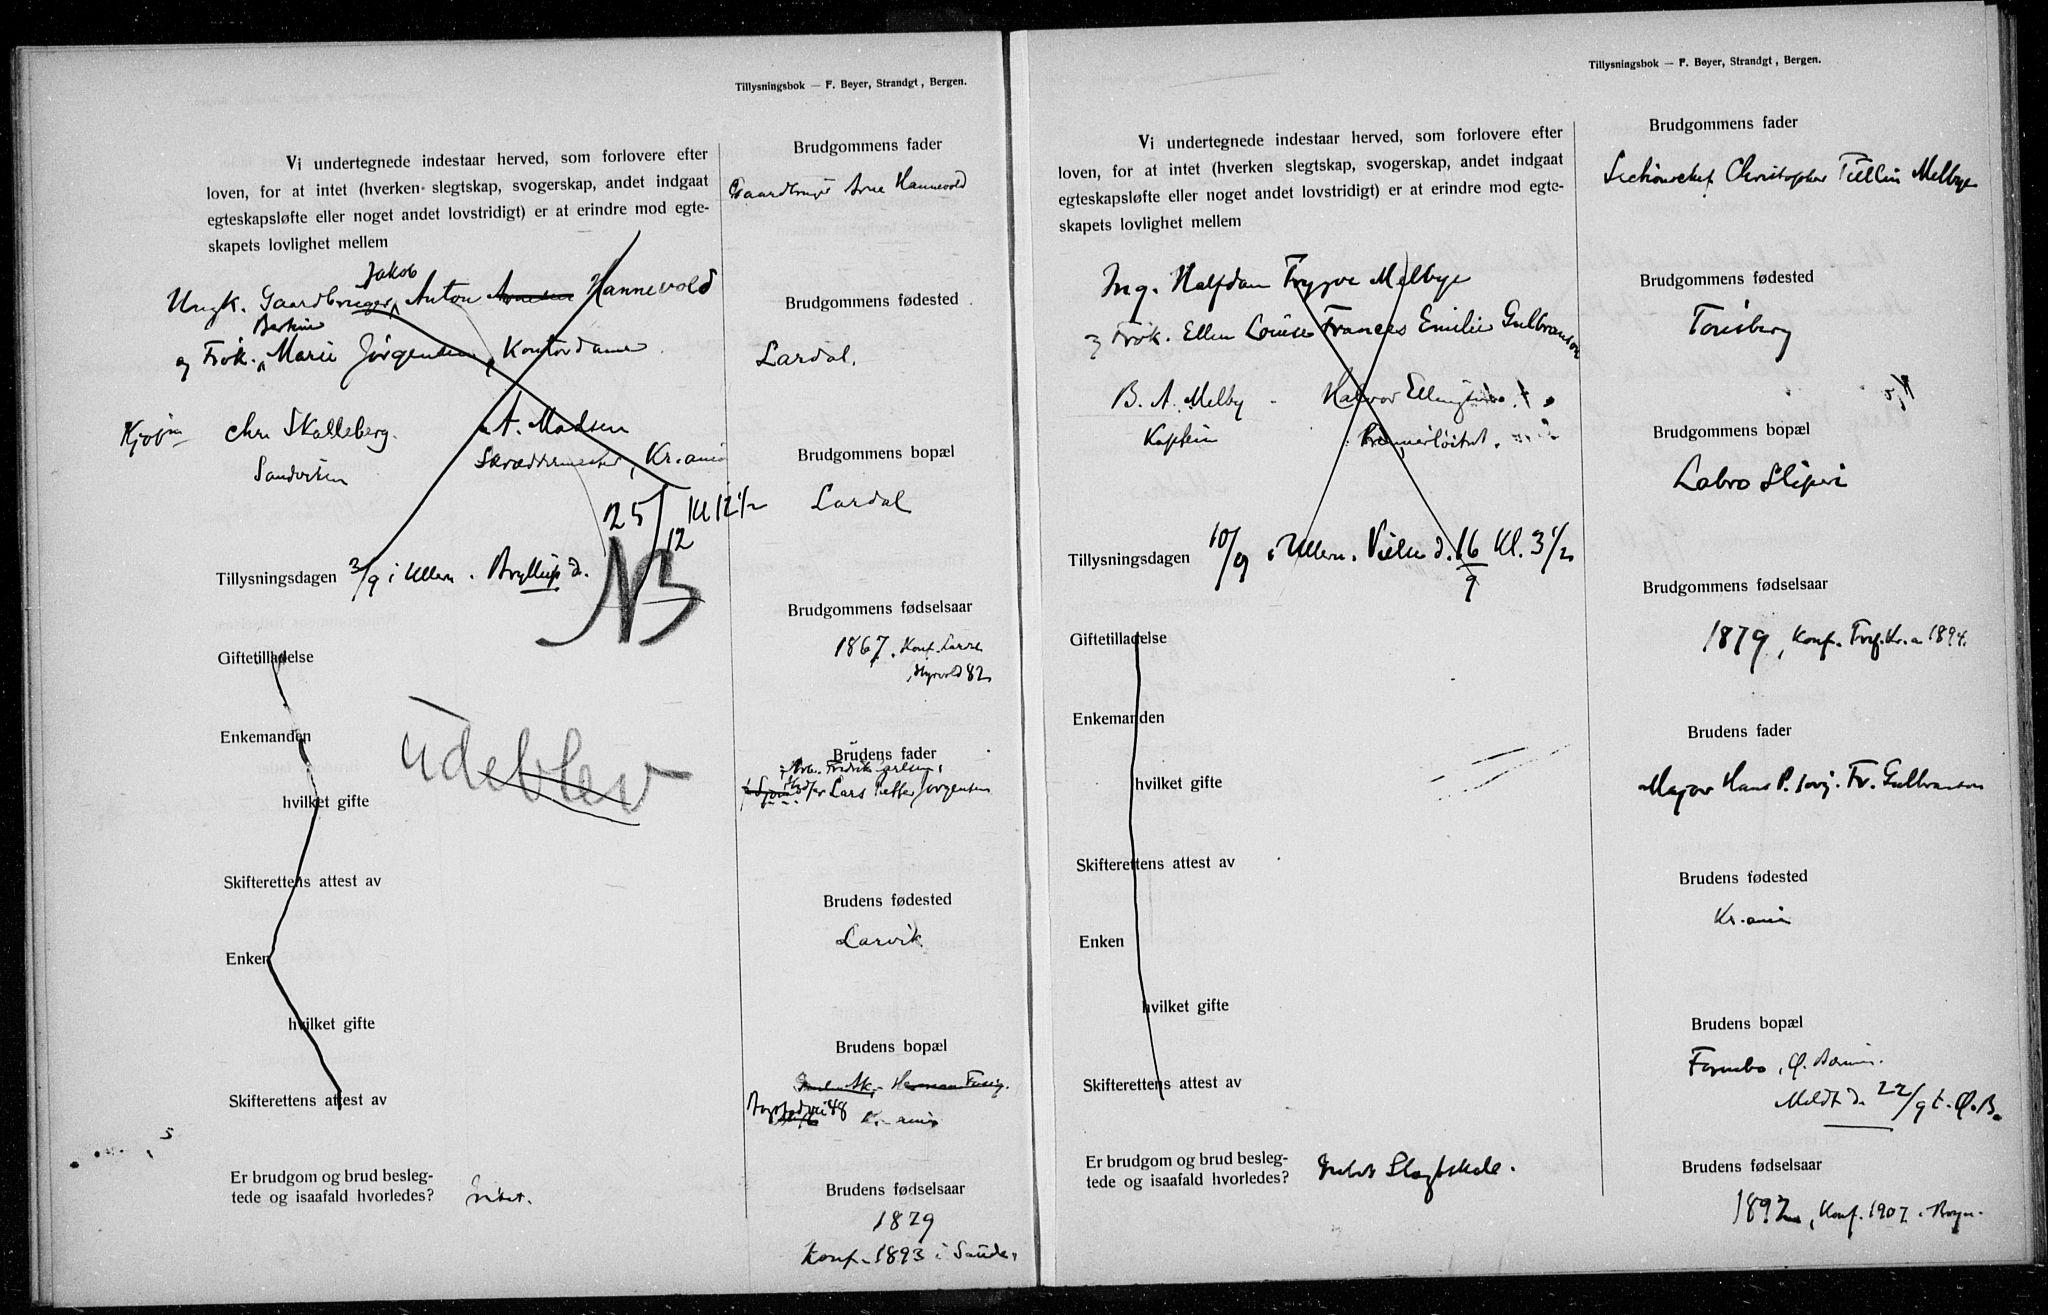 Tillysningsbok — F. Beyer, Strandgt, Bergen.
Vi undertegnede indestaar herved, som forlovere efter
loven, for at intet (hverken slegtskap, svogerskap, andet indgaat
egteskapsløfte eller noget andet lovstridigt) er at erindre mod egte-
skapets lovlighet mellem
Jakob
Ungk. Gaardbruger, Anton Arnesen Hannevold
Berthine
og Frøk. Marie Jørgensen, Kontordame
Kjøbm chr. Skalleberg. A. Madsen
Sandviken Skræddermester, Kr.ania
25/12 Kl 12 1/2
Tillysningsdagen 3/9 i Ullern. Bryllup d.
NB
Giftetilladelse
Enkemanden
udeblev
hvilket gifte
Skifterettens attest av
Enken
hvilket gifte
Skifterettens attest av
Er brudgom og brud besleg-
tede og isaafald hvorledes? Intet.
Brudgommens fader
Gaardbruger Arne Hannevold
Brudgommens fødested
Lardal.
Brudgommens bopæl
Lardal
Brudgommens fødselsaar
1867. Konf.
82
Brudens fader
Lars Petter Jørgensen
Brudens fødested
Larvik
Brudens bopæl
48 Kr.ania
Brudens fødselsaar
1879
Konf. 1893 i
Tillysningsbok — F. Beyer, Strandgt, Bergen.
Vi undertegnede indestaar herved, som forlovere efter
loven, for at intet (hverken slegtskap, svogerskap, andet indgaat
egteskapsløfte eller noget andet lovstridigt) er at erindre mod egte-
skapets lovlighet mellem
Ing. Halfdan Trygve Melbye
og Frøk. Ellen Louise Frances Emilie Gulbranson
B. A. Melby - Halvor
Kaptein Premierløitnt.
Tillysningsdagen 10/9 i Ullern. Vielse d. 16/9 Kl. 3 1/2
Giftetilladelse
Enkemanden
hvilket gifte
Skifterettens attest av
Enken
hvilket gifte
Skifterettens attest av
Er brudgom og brud besleg-
tede og isaafald hvorledes? Intet Slagtskab.
Brudgommens fader
Christopher Tellin Melbye
Brudgommens fødested
Tønsberg
Brudgommens bopæl
Labro Sliperi
Brudgommens fødselsaar
1879, Konf. Kr.a 1894.
Brudens fader
Major Hans P. Fr. Gulbranson
Brudens fødested
Kr.ania
Brudens bopæl
Fornebo, Ø. Bærum.
Meldt d. 22/9 t. Ø.B.
Brudens fødselsaar
1892, Konf. 1907